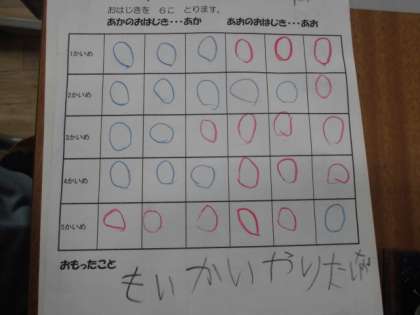 おはじきを 6こ とります。
あかのおはじき・・・あか　あおのおはじき・・・あお
1かいめ
2かいめ
3かいめ
4かいめ
5かいめ
おもったこと
もいかいやりたい